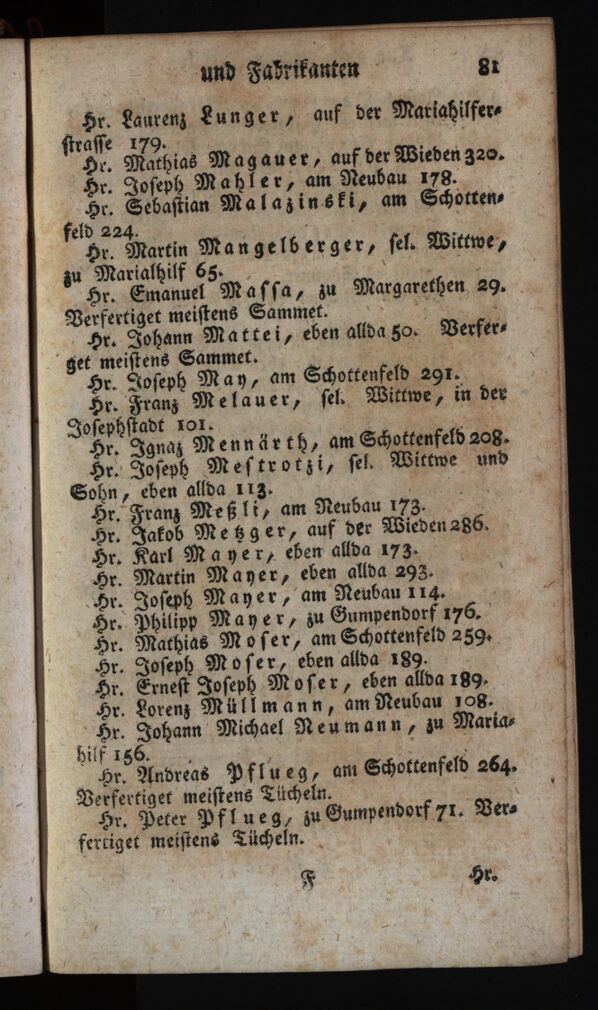 und Fabrikanten 81
Hr. Laurenz Lunger, auf der Mariahilfer-
strasse 179.
Hr. Mathias Magauer, auf der Wieden 320.
Hr. Joseph Mahler, am Neubau 178.
Hr. Sebastian Malazinski, am Schotten-
feld 224.
Hr. Martin Mangelberger, sel. Wittwe,
zu Marialhilf 65.
Hr. Emanuel Massa, zu Margarethen 29.
Verfertiget meistens Sammet.
Hr. Johann Mattei, eben allda 50. Verfer-
get meistens Sammet.
Hr. Joseph May, am Schottenfeld 291.
Hr. Franz Melauer, sel. Wittwe, in der
Josephstadt 101.
Hr. Ignaz Mennärth, am Schottenfeld 208.
Hr. Joseph Mestrotzi, sel. Wittwe und
Sohn, eben allda 113.
Hr. Franz Meßli, am Neubau 173.
Hr. Jakob Metzger, auf der Wieden 286.
Hr. Karl Mayer, eben allda 173.
Hr. Martin Mayer, eben allda 293.
Hr. Joseph Mayer, am Neubau 114.
Hr. Philipp Mayer, zu Gumpendorf 176.
Hr. Mathias Moser, am Schottenfeld 259.
Hr. Joseph Moser, eben allda 189.
Hr. Ernest Joseph Moser, eben allda 189.
Hr. Lorenz Müllmann, am Neubau 108.
Hr. Johann Michael Neumann, zu Maria-
hilf 156.
Hr. Andreas Pflueg, am Schottenfeld 264.
Verfertiget meistens Tücheln.
Hr. Peter Pflueg, zu Gumpendorf 71. Ver-
fertiget meistens Tücheln.
F Hr.